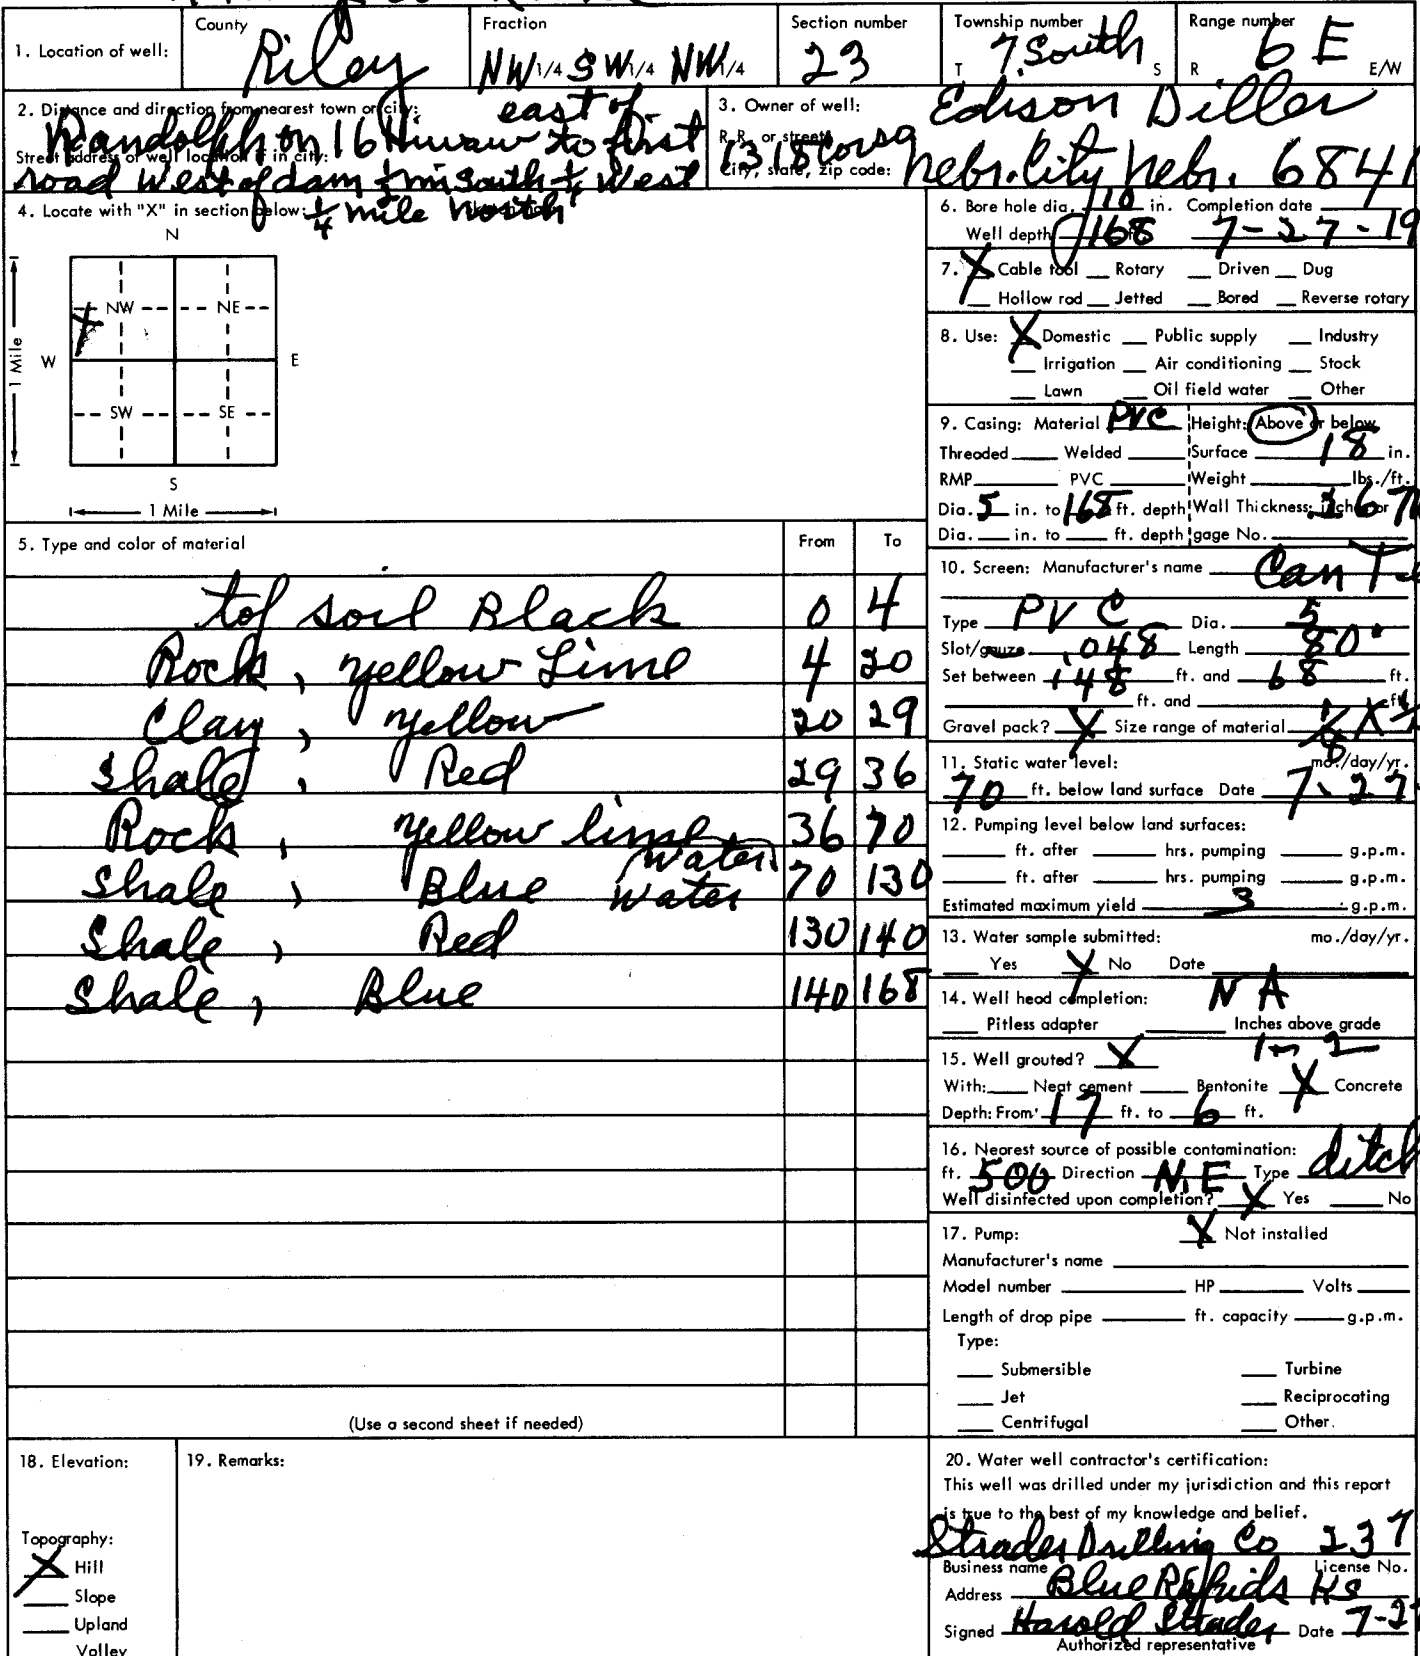 1. Location of well: County Riley Fraction NW 1/4 SW 1/4 NW 1/4 Section number 23 Township number T 7 South S Range number R 6 E E/W
2. Distance and direction from nearest town or city: east of
Randolph on 16 to first
Street address of well location if in city:
road west of dam ½ mi South ½ West
¼ mile north
3. Owner of well: Edison Diller
R.R. or street: 1318 Corso
City, state, zip code: Nebr. City, Nebr. 6841
4. Locate with "X" in section below:
N
NW NE
W X E
SW SE
S
1 Mile
1 Mile
5. Type and color of material From To
top soil Black 0 4
Rock, yellow Lime 4 20
Clay, yellow 20 29
Shale, Red 29 36
Rock, yellow lime water 36 70
Shale, Blue water 70 130
Shale, Red 130 140
Shale, Blue 140 168
(Use a second sheet if needed)
6. Bore hole dia. 10 in. Completion date
Well depth 168 ft. 7-27-19
7. X Cable tool Rotary Driven Dug
Hollow rod Jetted Bored Reverse rotary
8. Use: X Domestic Public supply Industry
Irrigation Air conditioning Stock
Lawn Oil field water Other
9. Casing: Material PVC Height: Above or below
Threaded Welded Surface 18 in.
RMP PVC Weight lbs./ft.
Dia. 5 in. to 168 ft. depth Wall Thickness: inches or
Dia. in. to ft. depth gage No.
10. Screen: Manufacturer's name Can T
Type PVC Dia. 5
Slot/gauze .048 Length 80'
Set between 148 ft. and 68 ft.
ft. and ft.
Gravel pack? X Size range of material
11. Static water level: mo./day/yr.
70 ft. below land surface Date 7-27
12. Pumping level below land surfaces:
ft. after hrs. pumping g.p.m.
ft. after hrs. pumping g.p.m.
Estimated maximum yield 3 g.p.m.
13. Water sample submitted: mo./day/yr.
Yes X No Date
14. Well head completion: NA
Pitless adapter Inches above grade
15. Well grouted? X
With: Neat cement Bentonite X Concrete
Depth: From 17 ft. to 6 ft.
16. Nearest source of possible contamination:
ft. 500 Direction N.E Type ditch
Well disinfected upon completion? X Yes No
17. Pump: X Not installed
Manufacturer's name
Model number HP Volts
Length of drop pipe ft. capacity g.p.m.
Type:
Submersible Turbine
Jet Reciprocating
Centrifugal Other
18. Elevation:
Topography:
X Hill
Slope
Upland
Valley
19. Remarks:
20. Water well contractor's certification:
This well was drilled under my jurisdiction and this report
is true to the best of my knowledge and belief.
Strader Drilling Co 237
Business name License No.
Address Blue Rapids Ks
Signed Harold Strader Date 7-2
Authorized representative